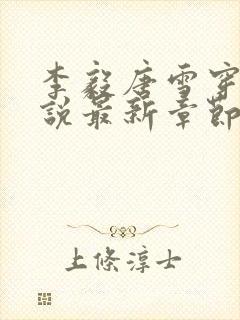 李毅唐雪穿
说最新章節
上條淳士